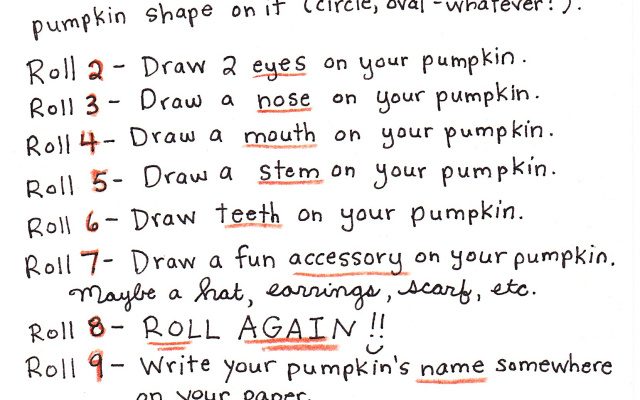 pumpkin shape on it (circle, oval - whatever!).
Roll 2 - Draw 2 eyes on your pumpkin.
Roll 3 - Draw a nose on your pumpkin.
Roll 4 - Draw a mouth on your pumpkin.
Roll 5 - Draw a stem on your pumpkin.
Roll 6 - Draw teeth on your pumpkin.
Roll 7 - Draw a fun accessory on your pumpkin.
Maybe a hat, earrings, scarf, etc.
Roll 8 - ROLL AGAIN!!
Roll 9 - Write your pumpkin's name somewhere
on your paper.